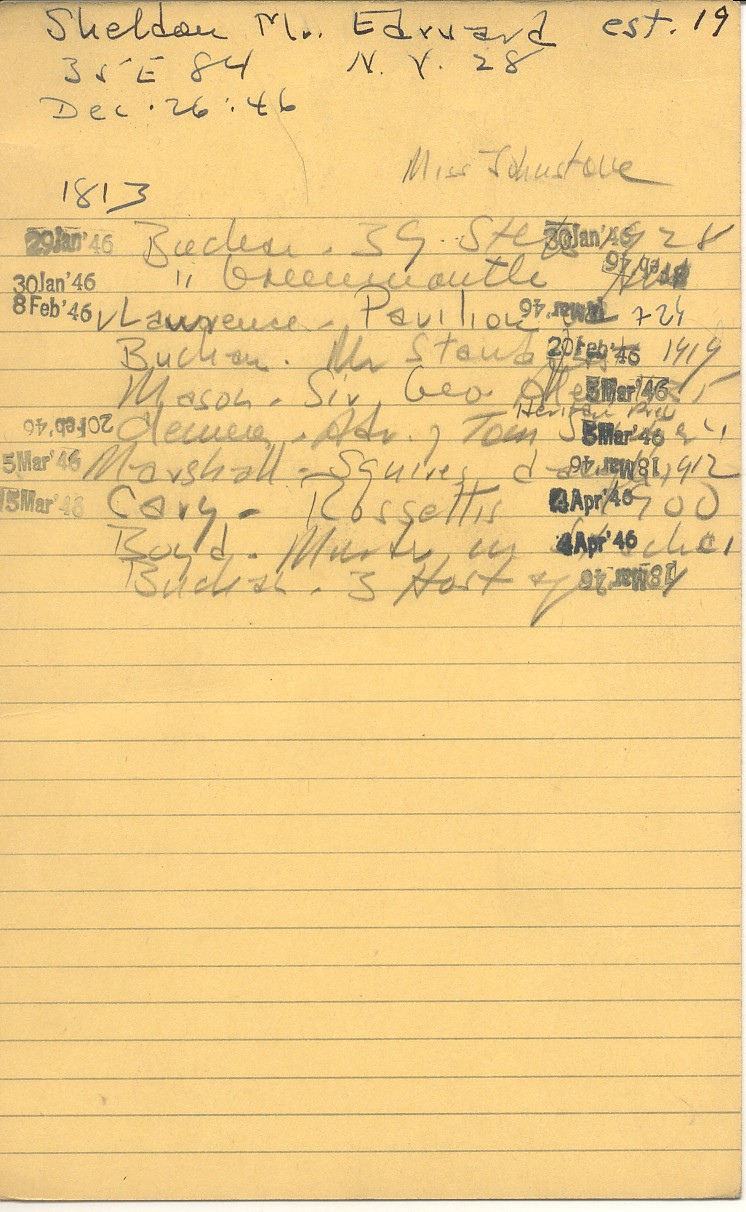 Sheldon Mr. Edward est. 19
35 E 84 N. Y. 28
Dec. 26. 46
Miss Johnstone
1813
29Jan'46 Buchan. 39 Steps 30Jan'46 28
30Jan'46 " Greenmantle Feb'46
8Feb'46 Lawrence - Pavilion Mar'46 724
Buchan. Mr Standfast 20Feb'46 1919
Mason - Sir Geo 5Mar'46
20Feb'46 Clemens. Adv. of Tom 5Mar'46
5Mar'46 Marshall - Squire's 18Mar'46 1912
15Mar'46 Cary - Rossettis 4Apr'46 1900
Boyd - Murder in 4Apr'46
Buchan. 3 Host 18Mar'46